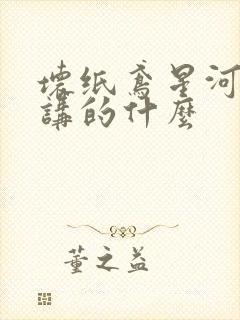 壞纸鸢星河
講的什麼
董之益